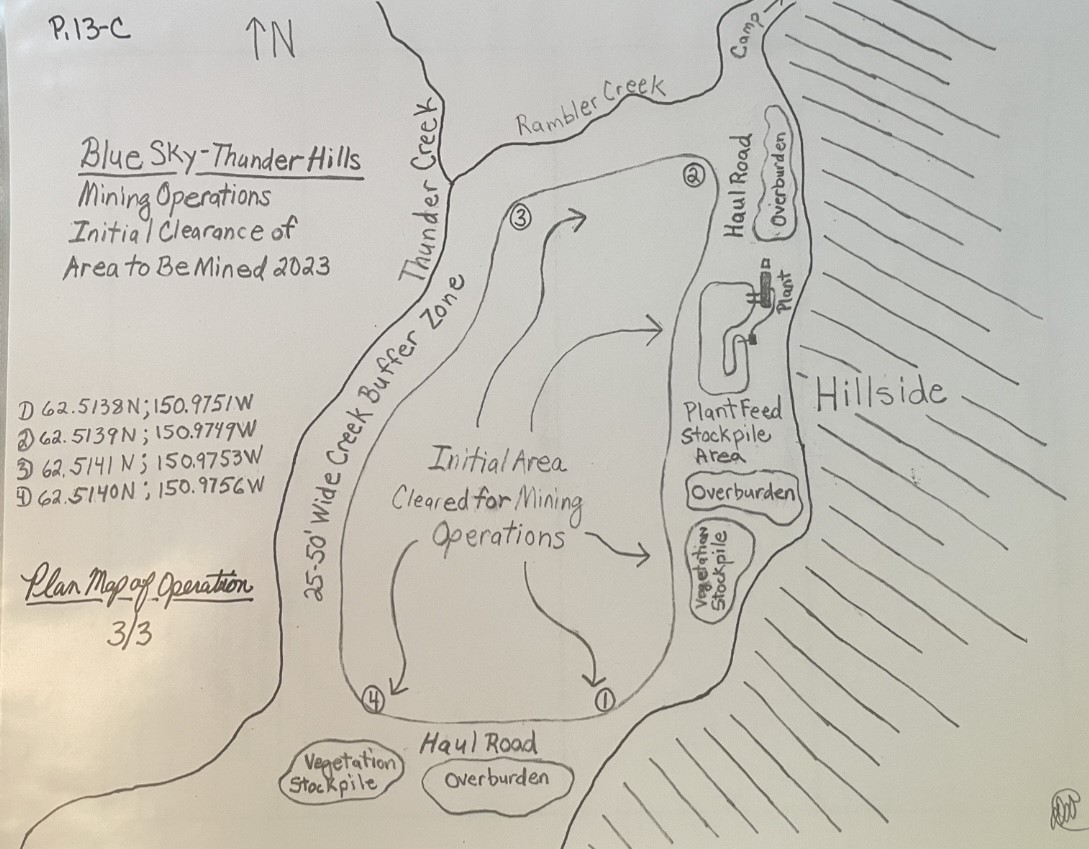 P.13-C
↑N
Blue Sky-Thunder Hills
Mining Operations
Initial Clearance of
Area to Be Mined 2023
Thunder Creek
Rambler Creek
Camp
Haul Road
Overburden
Plant
③
②
25-50' Wide Creek Buffer Zone
1) 62.5138N; 150.9751W
2) 62.5139N; 150.9749W
3) 62.5141N; 150.9753W
4) 62.5140N; 150.9756W
Hillside
Plant Feed
Stockpile
Area
Initial Area
Cleared for Mining
Operations
Overburden
Vegetation
Stockpile
Plan Map of Operation
3/3
④
①
Haul Road
Vegetation
Stockpile
Overburden